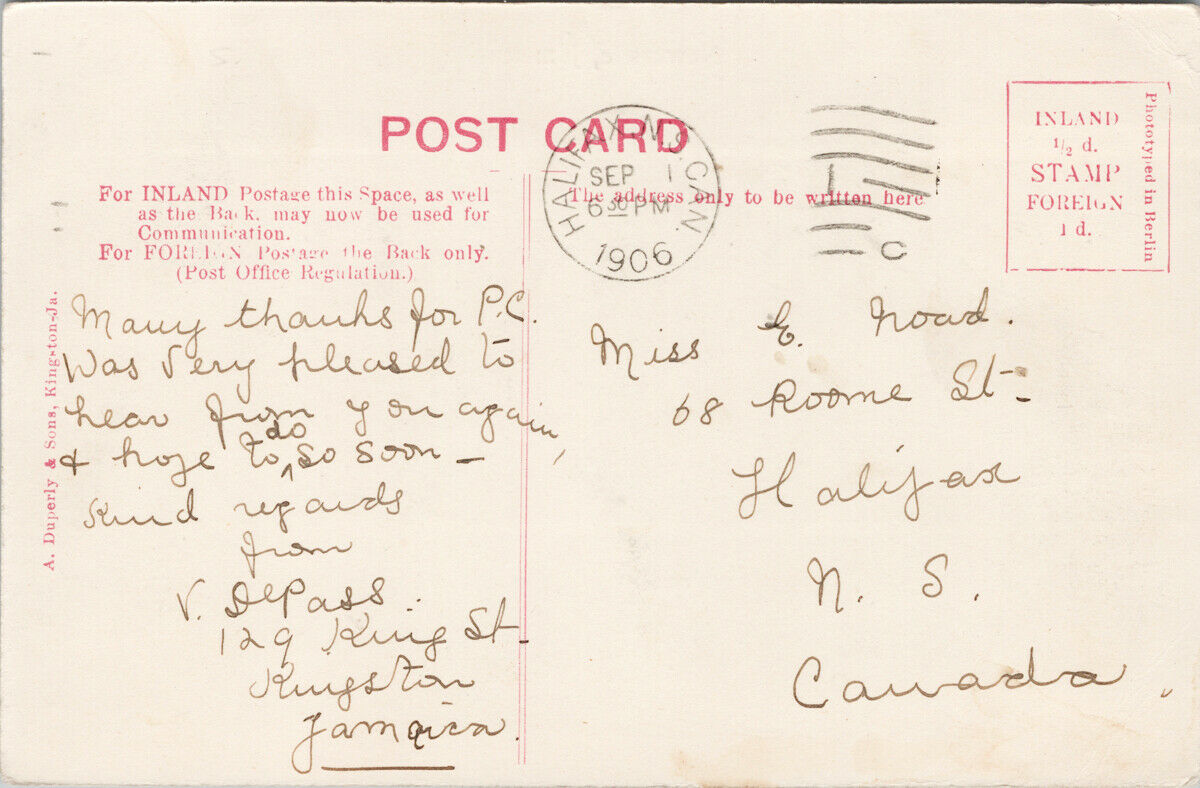 POST CARD
HALIFAX, N.S. CAN.
SEP 1
6 30 PM
1906
C
INLAND
1/2 d.
STAMP
FOREIGN
1 d.
Phototyped in Berlin
For INLAND Postage this Space, as well
as the Back, may now be used for
Communication.
For FOREIGN Postage the Back only.
(Post Office Regulation.)
The address only to be written here
A. Duperly & Sons, Kingston-Ja.
Many thanks for P.C.
Was Very pleased to
hear from you again,
& hope to do so soon -
Kind regards
from
V. DePass.
129 King St.
Kingston
Jamaica.
Miss E. Noad.
68 Roome St.
Halifax
N. S.
Canada,